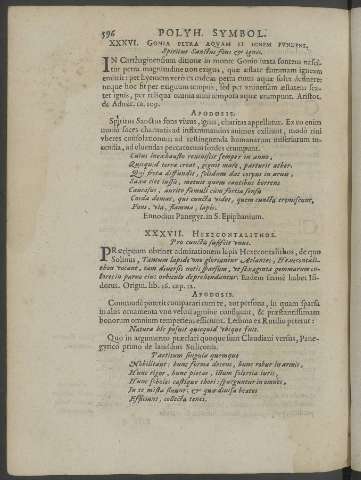 596 POLYH. SYMBOL.
XXXVI. GONIA PETRA AQVAM ET IGNEM FVNDENS,
Spiritus Sanctus fons & ignis.
IN Carthaginensium ditione in monte Gonio iuxta fontem nasci-
tur petra magnitudine non exigua, quæ æstate flammam igneam
emittit: per hyemem verò ex eadem petra funditur
neque hoc fit per exiguum tempus, sed per
tet ignis, per reliqua omnia anni tempora aquæ erumpunt. Aristot.
de Admir. ca. 109.
APODOSIS.
Spiritus Sanctus fons vivus, ignis, charitas appellatur. Ex eo enim
modò sacræ charitatis ad inflammandum animos exiliunt, modò rivi
vberes consolationum ad restinguenda humanarum miseriarum in-
cendia, ad eluendas peccatorum sordes erumpunt.
Cuius inexhausto reuiuiscit semper in anno,
Quicquid terra creat, gignit mare, parturit æther.
Qui freta diffundit, solidum dat corpus in aruis,
Saxa ciet iussu, metuit quem
Caucasus, aurito famuli cùm fortia sensu
Corda domat, qui cuncta videt, quem cuncta tremiscunt,
Fons, via, flamma, lapis.
Ennodius Panegyr. in S. Epiphanium.
XXXVII. HEXECONTALITHOS.
Pro cunctis sufficit vnus.
PRæcipuum obtinet admirationem lapis Hexecontalithos, de quo
Solinus, Tantum lapide vno gloriantur Hexecontali-
thon vocant, tam diuersis notis sparsum, vt sexaginta gemmarum co-
lores in paruo eius orbiculo deprehendantur. Eadem fermè habet Isi-
dorus. Origin. lib. 16. cap. 12.
APODOSIS.
Commodè poterit comparari cum re, aut persona, in quam sparsa
in alias ornamenta von velut agmine confluant, & præstantissimam
bonorum omnium temperiem efficiunt. Lesbina ex Rutilio petetur:
Natura hîc posuit quicquid vbique fuit.
Quo in argumento præclari quoque sunt Claudiani versus, Pane-
gyrico primo de laudibus Stiliconis.
Partitum singula quemque
Nobilitant: hunc forma decens, hunc robur in armis,
Hunc rigor, hunc pietas, illum solertia iuris,
Hunc soboles castique thori: sparguntur in omnes,
In te mista fluunt, & quæ diuisa beatos
Efficiunt, collecta tenes.